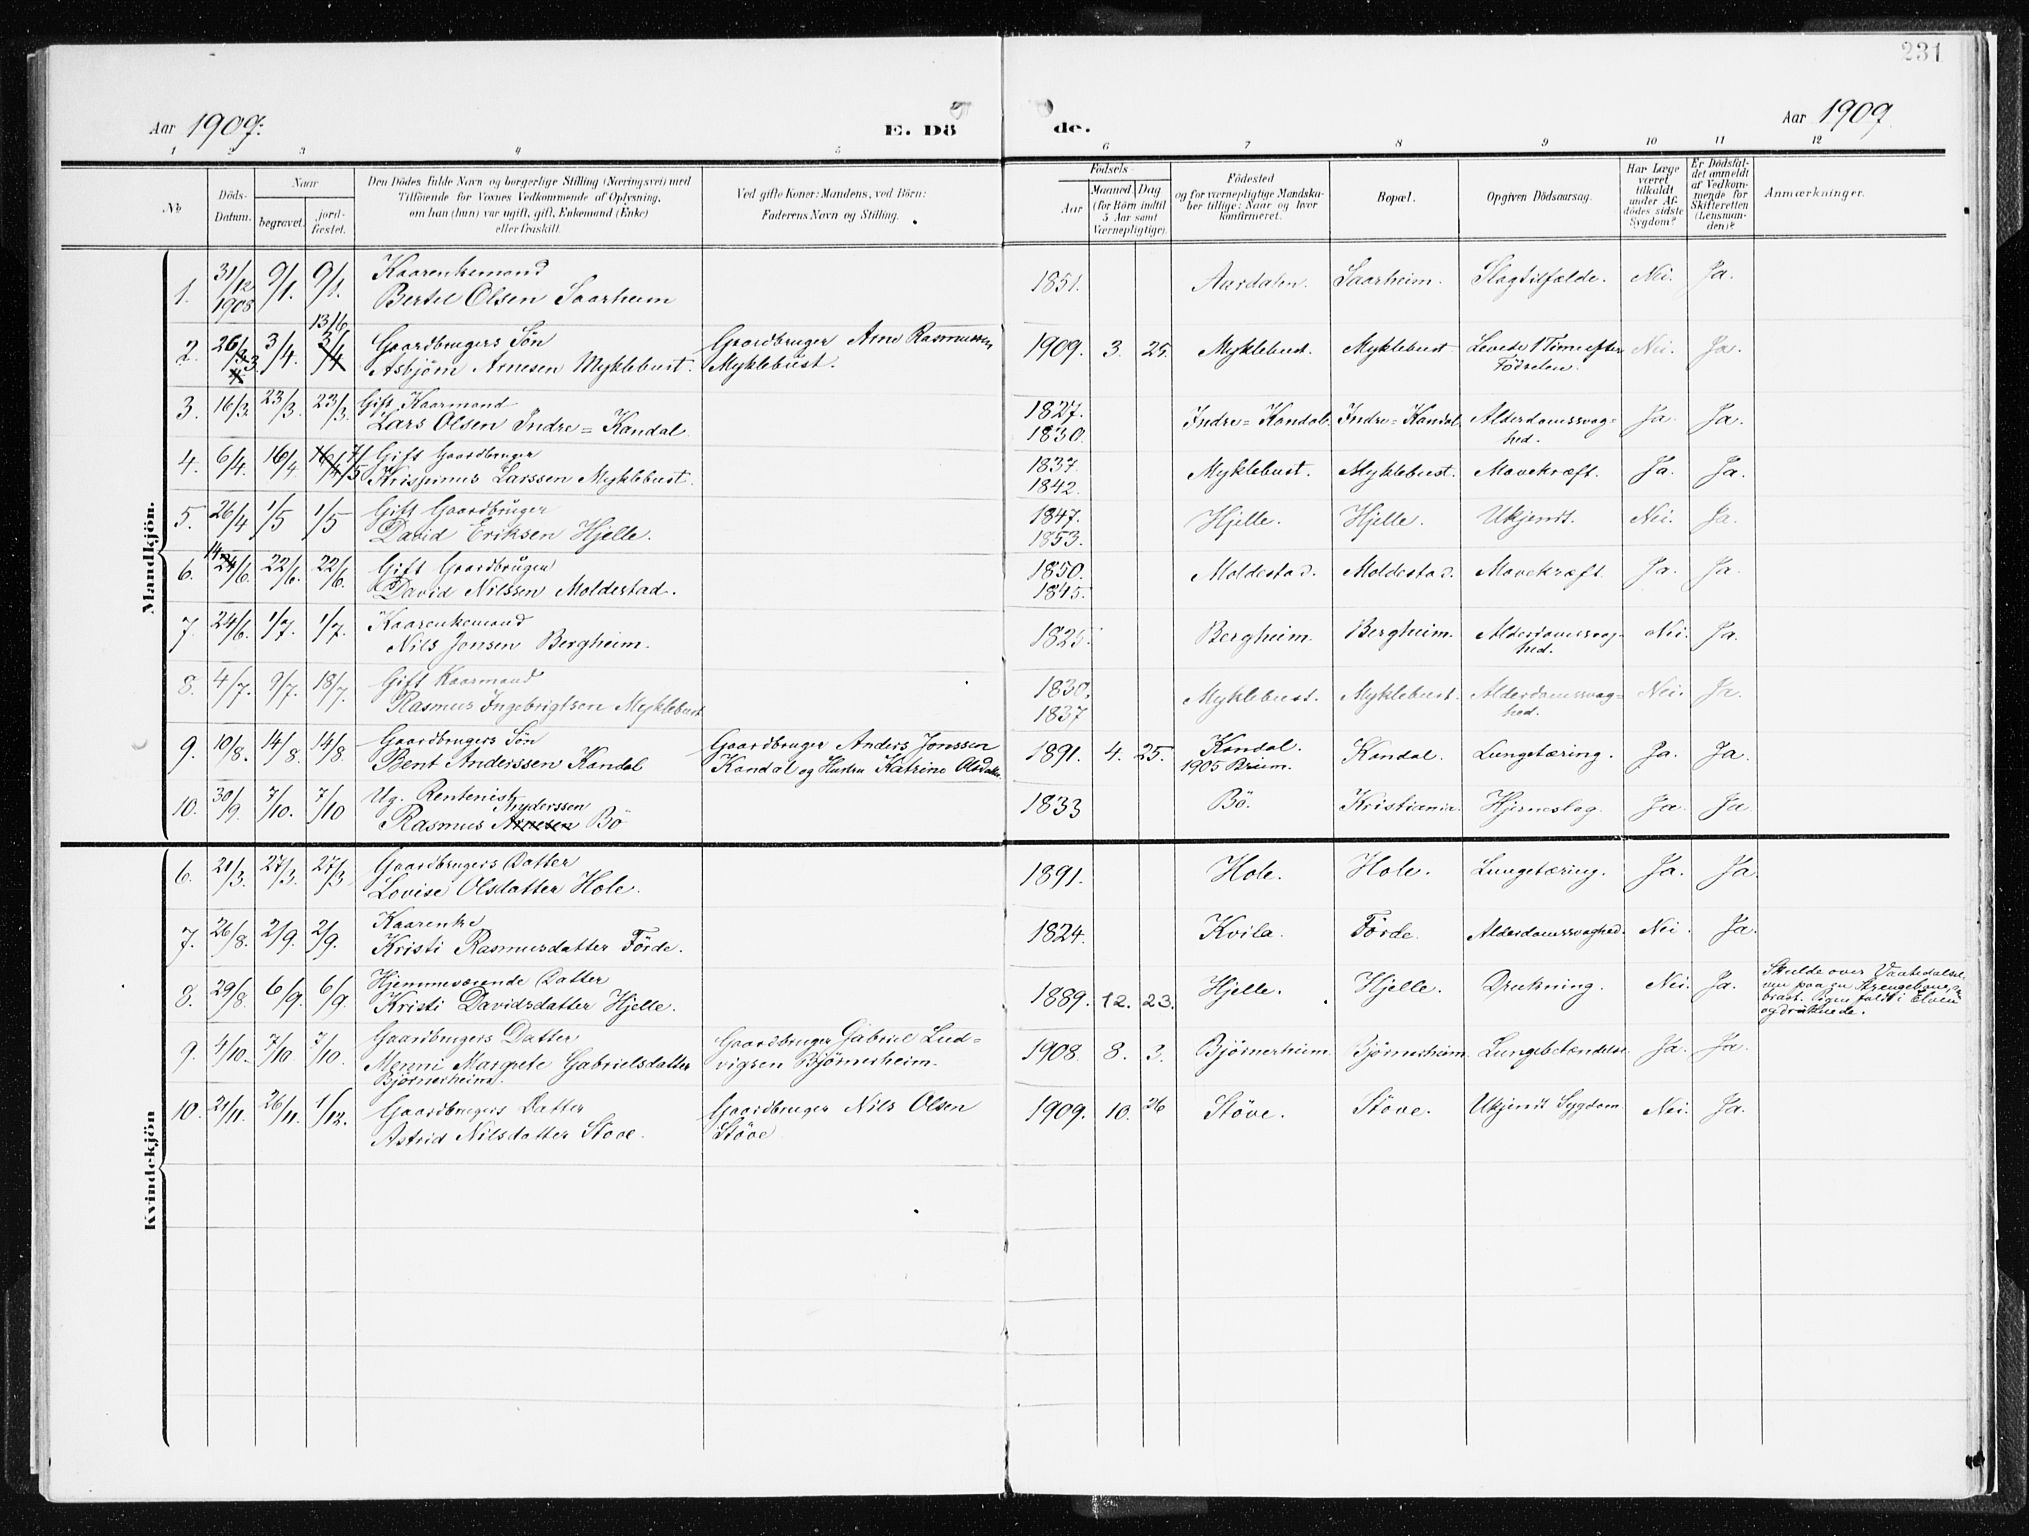 231
Aar 1909.
E. Dö
de.
Aar 1909
1 2 3 4 5 6 7 8 9 10 11 12
No
Döds-
Datum.
Naar
begravet.
jord-
fæstet.
Den Dödes fulde Navn og borgerlige Stilling (Næringsvei) med
Tilföiende for Voxnes Vedkommende af Oplysning,
om han (hun) var ugift, gift, Enkemand (Enke)
eller fraskilt.
Ved gifte Koner: Mandens, ved Börn:
Faderens Navn og Stilling.
Födsels-
Aar
Maaned
Dag
(for Börn indtil
5 Aar samt
Værnepligtige).
Födested
og for værnepligtige Mandska-
ber tillige: Naar og hvor
konfirmeret.
Bopæl.
Opgiven Dödsaarsag.
Har Læge
været
tilkaldt
under Af-
dödes sidste
Sygdom?
Er Dödsfal-
det anmeldt
af Vedkom-
mende for
Skifteretten
(Lensman-
den)?
Anmærkninger.
Mandkjön.
1. 31/12 1908 9/1. 9/1. Kaarenkemand
Bertel Olsen Saarheim 1851. Aardalen. Saarheim. Slagtilfælde. Nei. Ja.
2. 26/3. 3/4. 13/6 3/4 Gaardbrugers Søn
Asbjørn Arnesen Myklebust. Gaardbruger Arne Rasmussen
Myklebust. 1909. 3. 25. Myklebust. Myklebust. Levede 1 Time efter
Fødselen. Nei. Ja.
3. 16/3. 23/3. 23/3. Gift Kaarmand
Lars Olsen Indre=Kandal. 1827.
1830. Indre=Kandal. Indre=Kandal. Alderdomssvag-
hed. Ja. Ja.
4. 6/4. 16/4. 16/4 7/5 Gift Gaardbruger
Krispinus Larssen Myklebust. 1837.
1842. Myklebust. Myklebust. Mavekræft. Ja. Ja.
5. 26/4 1/5 1/5 Gift Gaardbruger
David Eriksen Hjelle. 1847.
1853. Hjelle. Hjelle. Ukjendt. Nei. Ja.
6. 14 24/6. 22/6. 22/6. Gift Gaardbruger
David Nilssen Moldestad. 1850.
1845. Moldestad. Moldestad. Mavekræft. Ja. Ja.
7. 24/6. 1/7. 1/7. Kaarenkemand
Nils Jonsen Bergheim. 1825. Bergheim. Bergheim. Alderdomssvag-
hed. Nei. Ja.
8. 4/7. 9/7. 18/7. Gift Kaarmand
Rasmus Ingebrigtsen Myklebust 1830.
1837 Myklebust. Myklebust. Alderdomssvag-
hed. Nei. Ja.
9. 10/8. 14/8. 14/8 Gaardbrugers Søn
Bent Anderssen Kandal Gaardbruger Anders Jonssen
Kandal og Hustru Katrine Olsdatter. 1891. 4. 25. Kandal.
1905 Breim. Kandal. Lungetæring. Ja. Ja.
10. 30/9. 7/10. 7/10 Ug. Rentenist
Anderssen
Rasmus Arnesen Bö 1833 Bö. Kristiania. Hjerneslag. Ja. Ja
Kvindekjön
6. 21/3. 27/3. 27/3 Gaardbrugers Datter
Lovise Olsdatter Hole. 1891. Hole. Hole. Lungetæring. Ja. Ja.
7. 26/8. 2/9. 2/9. Kaarenke
Kristi Rasmusdatter Förde. 1824. Kvila. Förde. Alderdomssvaghed. Nei. Ja.
8. 29/8. 6/9. 6/9. Hjemmeværende Datter
Kristi Davidsdatter Hjelle. 1889. 12. 23. Hjelle. Hjelle. Drukning. Nei. Ja. Skulde over Vaatedalsel-
ven paa en
brast. Pigen faldt i Elven
og druknede.
9. 4/10. 7/10. 7/10. Gaardbrugers Datter
Menni Margrete Gabrielsdatter
Bjørnerheim. Gaardbruger Gabriel Lud=
vigsen Bjørnerheim. 1908. 8. 3. Bjørnerheim. Bjørnerheim. Lungebetændelse. Ja. Ja.
10. 21/11. 26/11. 1/12. Gaardbrugers Datter
Astrid Nilsdatter Støve. Gaardbruger Nils Olsen
Støve 1909. 10. 26 Støve. Støve. Ukjendt Sygdom. Nei. Ja.